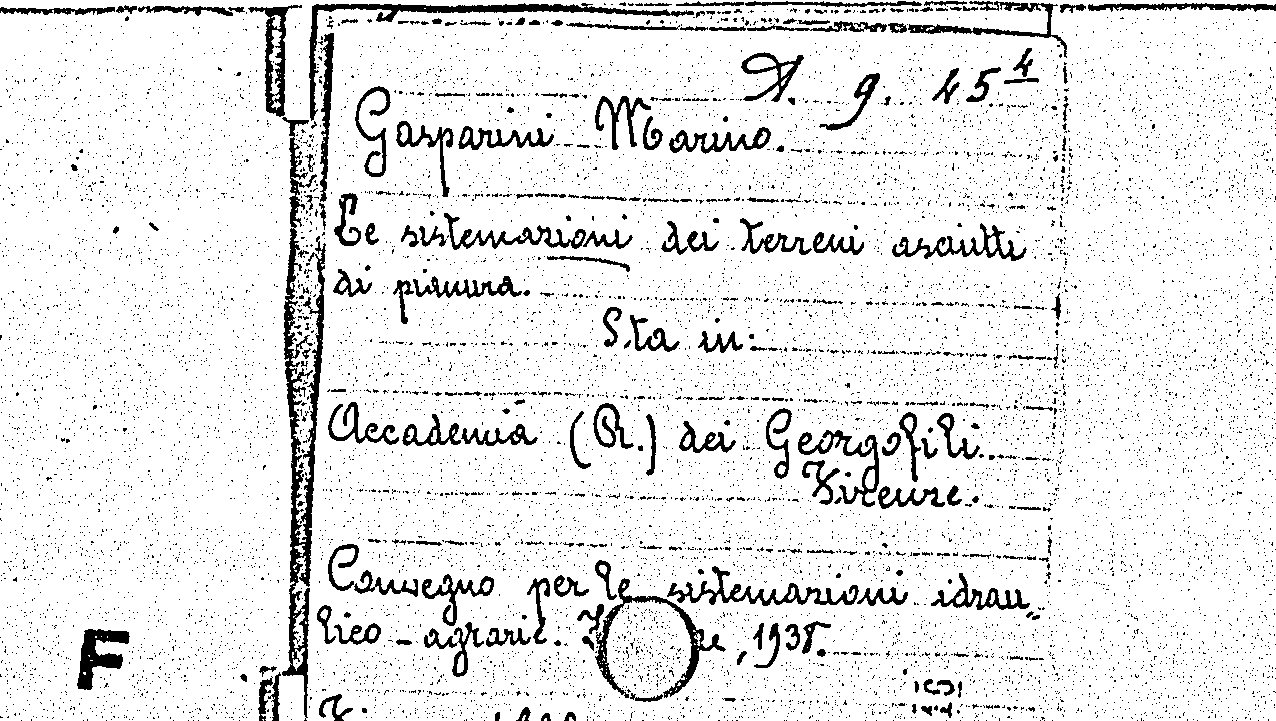 A. 9. 45 4
Gasparini Marino.
Le sistemazioni dei terreni asciutti
di pianura.
Sta in:
Accademia (R.) dei Georgofili.
Firenze.
Convegno per le sistemazioni idrau„
lico - agrarie. , 1938.
F